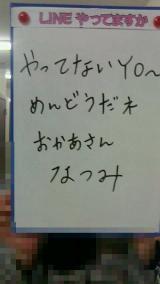 LINEやってますか
やってないYO〜
めんどうだネ
おかあさん
なつみ